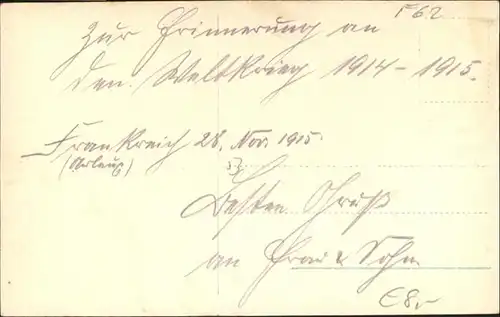 F62
Zur Erinnerung an
den Weltkrieg 1914-1915.
Frankreich 28. Nov 1915.
(Arleux)
Besten Gruß
an Frau & Sohn
€8,-